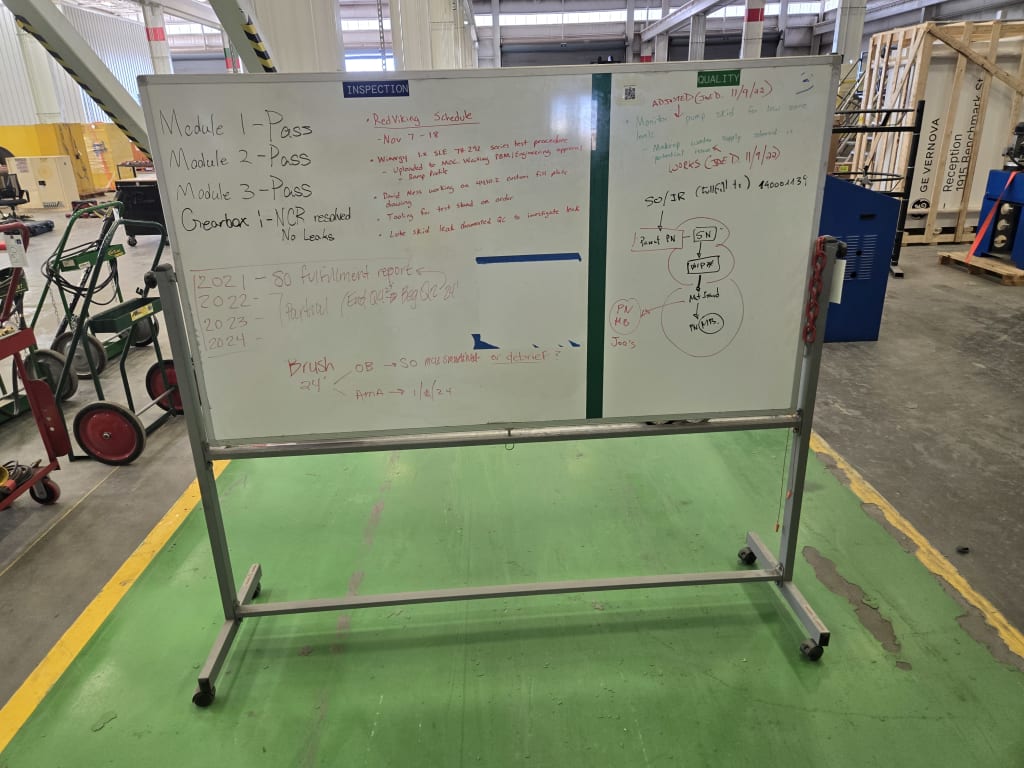 INSPECTION
Module 1-Pass
Module 2-Pass
Module 3-Pass
Gearbox 1-NCR resolved
No Leaks
• RedViking Schedule
- Nov 7 - 18
• Winergy 1.x SLE series test procedure
- Uploaded to MOC. Waiting PBM/Engineering approval
- Ramp Profile
• David Ness working on custom fill plate
drawing
• Tooling for test stand on order
• Lube skid leak QC to investigate leak
2021 - SO fulfillment report
2022 -
2023 -
2024 -
Brush
24"
OB → SO or debrief?
AMA → 24
QUALITY
ADJUSTED (JOE D. 11/9/22)
• Monitor pump skid for low
• Makeup water supply solenoid is
potential issue
WORKS (JOE D. 11/9/22)
SO/IR (fulfill to)
Parent PN
SN
WIP #
PN MB.
PN
MB
Joo's
GE VERNOVA
Reception
1915 Benchmark